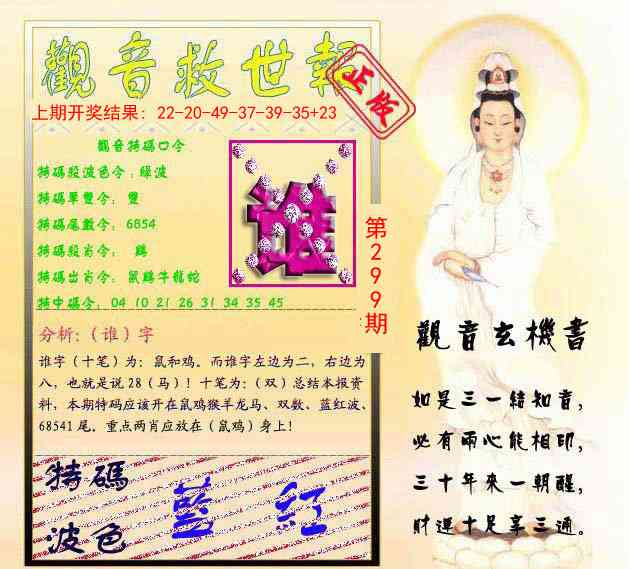 觀音救世報
正版
上期开奖结果：22-20-49-37-39-35+23
觀音特碼口令
特碼段波色令：綠波
特碼單雙令： 雙
特碼尾數令： 6854
特碼段肖令： 鷄
特碼出肖令： 鼠鷄牛龍蛇
特中碼令： 04 10 21 26 31 34 35 45
谁
第299期
分析：（谁）字
谁字（十笔）为：鼠和鸡。而谁字左边为二，右边为
八，也就是说28（马）！十笔为：（双）总结本报资
料，本期特码应该开在鼠鸡猴羊龙马、双数、蓝红波、
68541尾。重点两肖应放在（鼠鸡）身上！
特碼
波色
藍 紅
觀音玄機書
如是三一結知音，
必有兩心能相印，
三十年來一朝醒，
財運十足享三通。